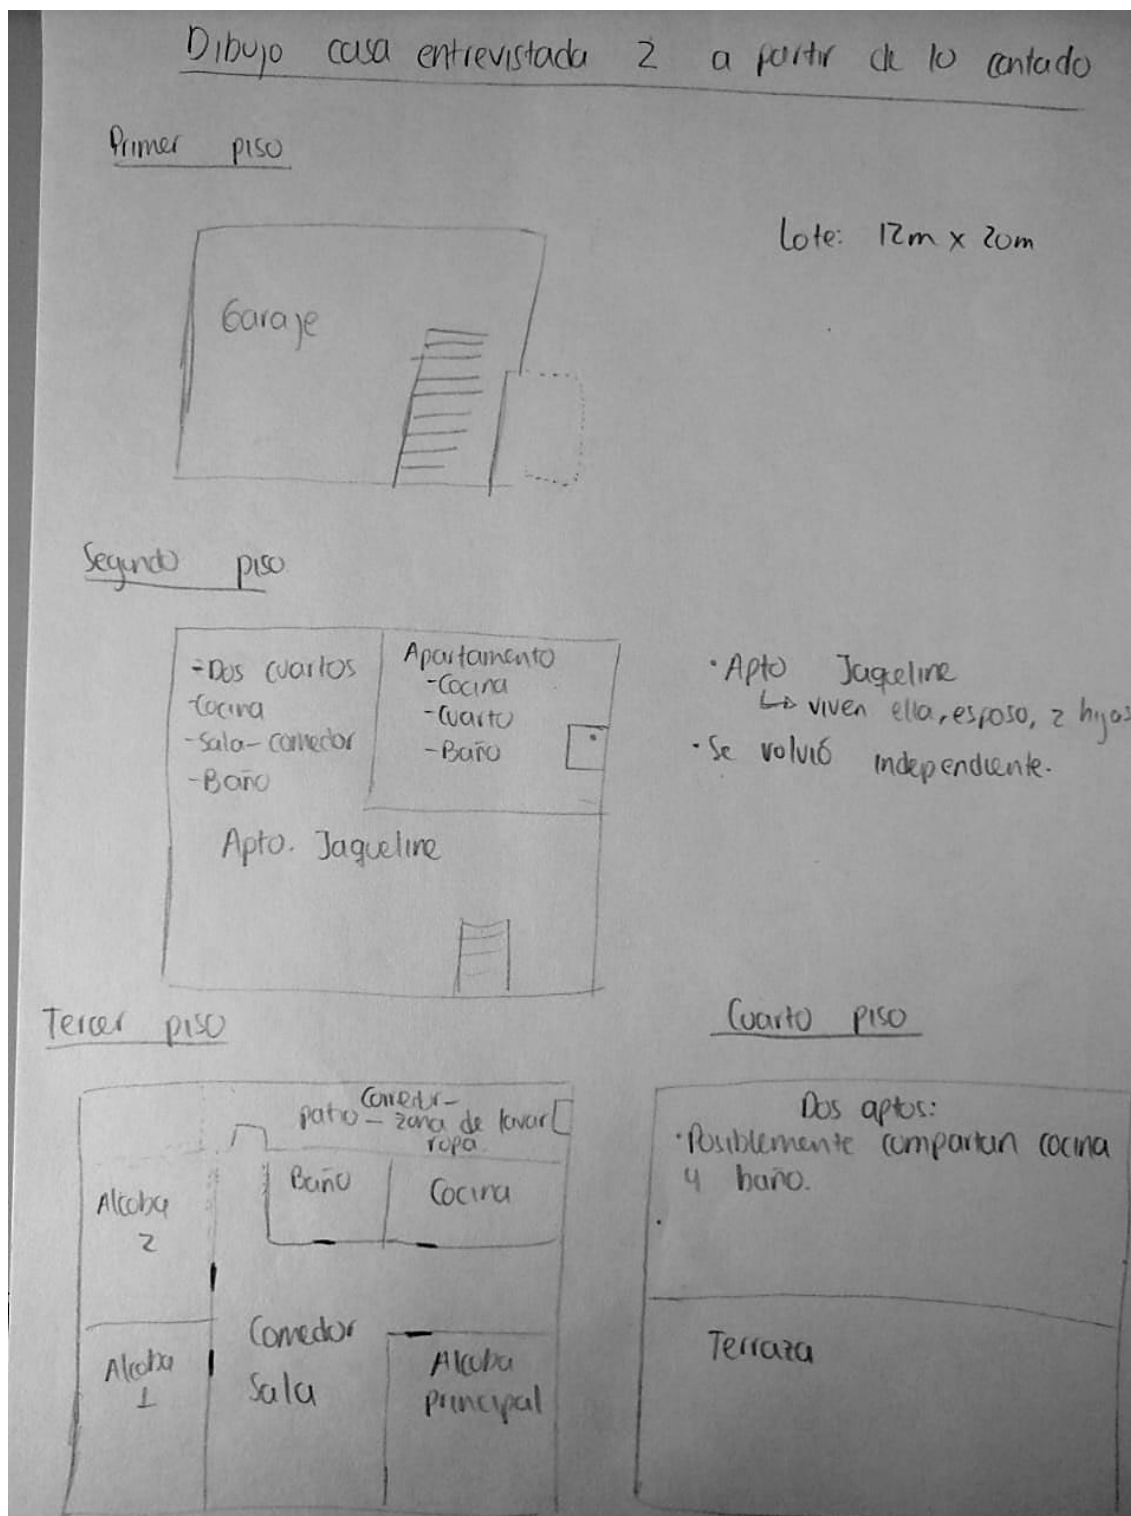 Dibujo casa entrevistada 2 a partir de lo contado
Primer piso
Lote: 12m x 20m
Garaje
Segundo piso
-Dos cuartos
-Cocina
-Sala-comedor
-Baño
Apartamento
-Cocina
-Cuarto
-Baño
Apto. Jaqueline
· Apto Jaqueline
↳ viven ella, esposo, 2 hijos
· Se volvió independiente.
Tercer piso
Corredor-
patio - zona de lavar
ropa
Baño
Cocina
Alcoba
2
Comedor
Sala
Alcoba
1
Alcoba
principal
Cuarto piso
Dos aptos:
·Posiblemente compartan cocina
y baño.
Terraza